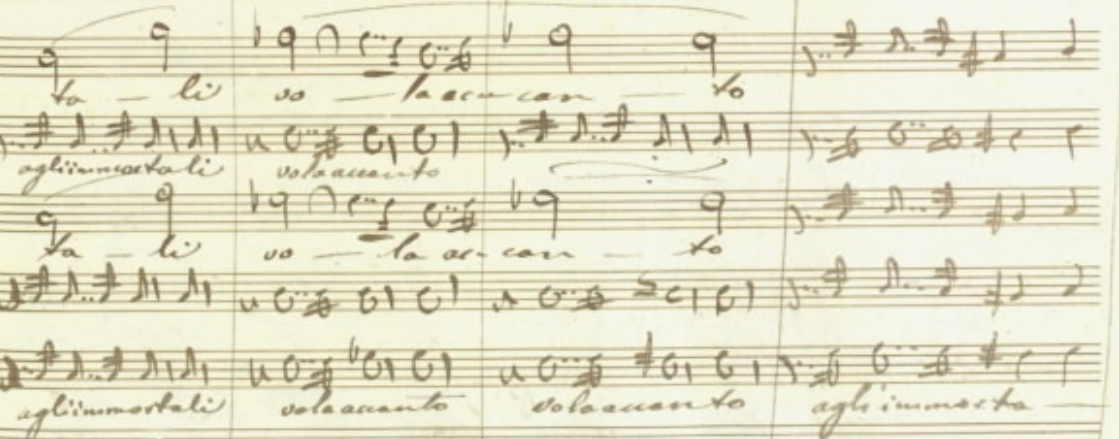 ta – li vo – la ac-can – to
agliimmortali volaaccanto
ta – li vo – la ac-can – to
agliimmortali volaaccanto volaaccanto agli immorta –